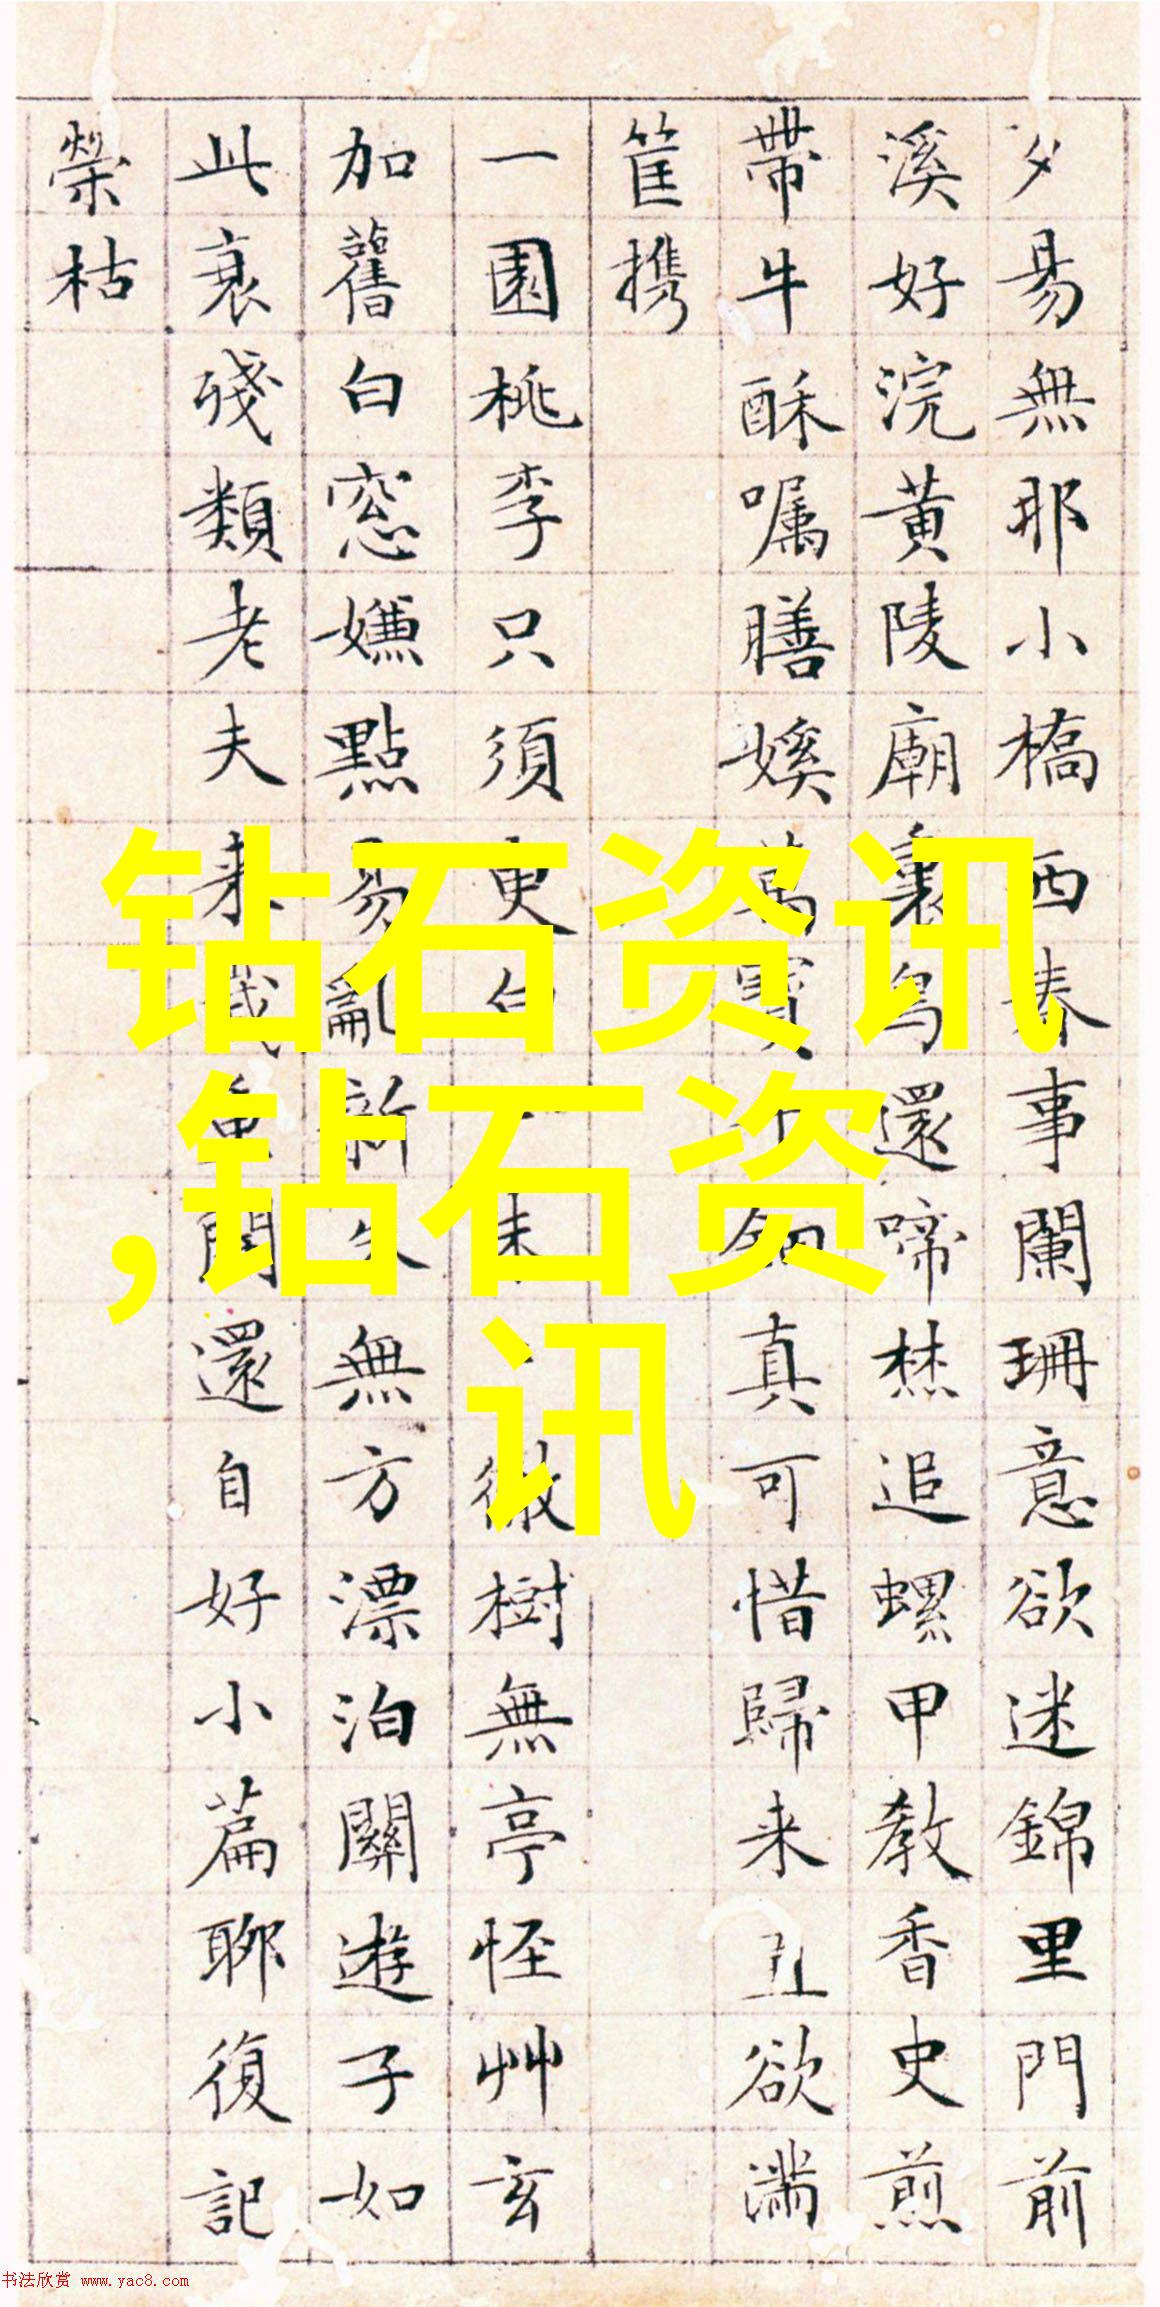 夕易無耶小橋西春事闌珊意欲迷錦里門前
溪好浣黄陵廟裏烏還啼焚追螺甲教香史煎
帶牛酥嘱膳媛萬寳 真可惜歸来丑欲满
筐携
一園桃李只須更 徽樹無亭怪艸玄
加舊白窓嫌點易亂新 無方漂泊關遊子如
此衰殘類老夫来 還自好小篇聊復記
榮枯
钻石资讯
,钻石资
讯
书法欣赏 www.yac8.com